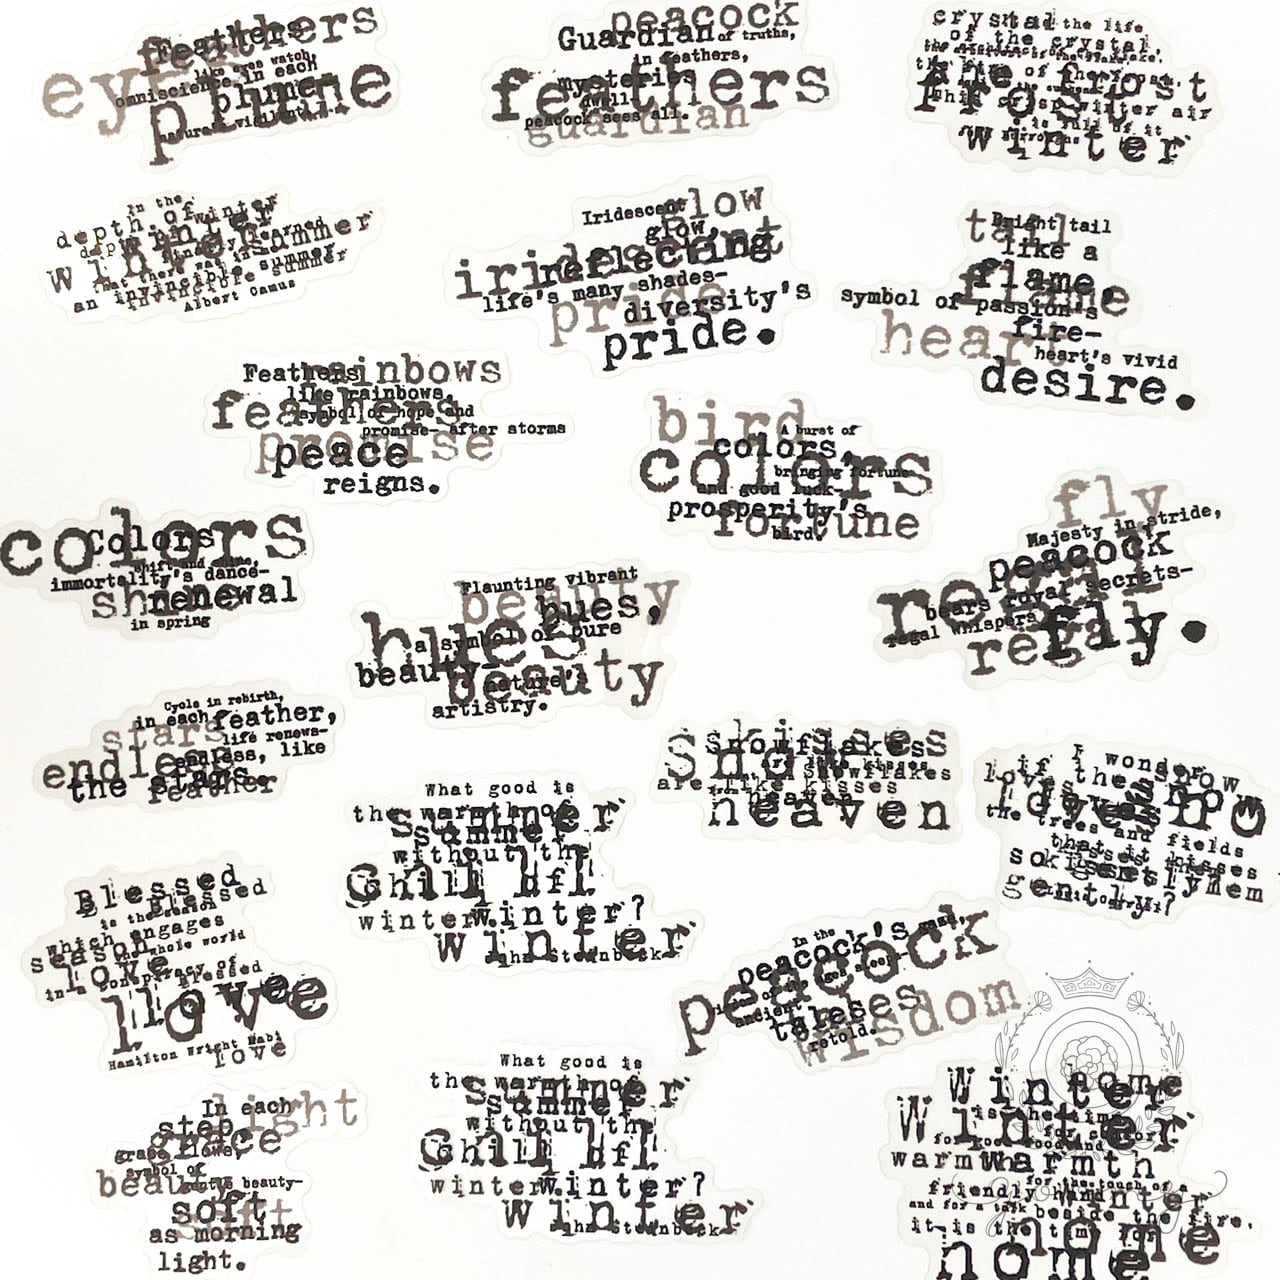 Feathers
feathers
eyes
like eyes watch,
omniscience in each
plume-
plume
natural vigil
peacock
Guardian of truths,
in feathers,
mysteries
feathers
dwell-
peacock sees all.
guardian
crystal the life
of the crystal,
the fire of the frost,
frost
this crisp winter air
is full of it
winter
In the
depth of winter
winter
that there was in
an invincible summer
Albert Camus
Iridescent glow
glow,
iridescent
reflecting
life's many shades-
pride
diversity's
pride.
tail
Bright tail
like a
flame,
flame
symbol of passion's
fire-
heart
heart's vivid
desire.
Feathers rainbows
like rainbows,
feathers
symbol of hope and
promise- after storms
promise
peace
reigns.
bird
A burst of
colors,
colors
bringing fortune
and good luck-
prosperity's
fortune
bird.
colors
Colors
shift and shine,
immortality's dance-
renewal
in spring
Flaunting vibrant
beauty
hues,
hues
a symbol of pure
beauty-
nature's
beauty
artistry.
fly
Majesty in stride,
peacock
regal
bears royal secrets-
regal whispers
fly.
regal
Cycle in rebirth,
in each feather,
stars
life renews-
endless
endless, like
the stars.
feather
kisses
Snowflakes
Snow
are like kisses
Snowflakes
heaven
I wonder
if the snow
loves
the trees and fields
that it kisses
so
gently
them
gently?
What good is
the warmth of
summer
summer
without the
Chill of
winter
winter?
winter
John Steinbeck
Blessed
Blessed
is the season
which engages
the whole world
season
love
in a conspiracy of
Blessed
love
love
Hamilton Wright Mabi
love
In the
peacock's gaze,
peacock
of the ages sleep-
ancient
tales
wisdom
retold.
In each
light
step,
grace
grace flows,
symbol of
beauty
gentle beauty-
soft
soft
as morning
light.
What good is
the warmth of
summer
summer
without the
Chill of
winter
winter?
winter
John Steinbeck
Winter
home
is the time
Winter
for comfort
for good food and
warmth
warmth
for the touch of a
friendly hand
winter
and for a talk beside the fire,
it is the time for
home
home